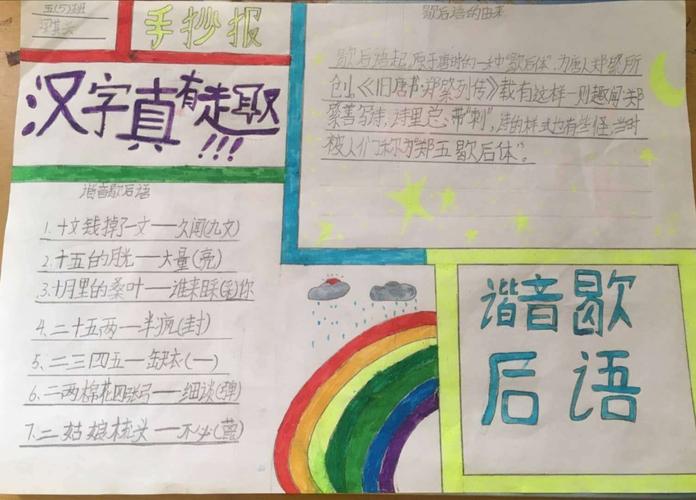 五(5)班
手抄报
汉字真有趣!!!
谐音歇后语
1.十文钱掉了一文——久闻(九文)
2.十五的月光——大量(亮)
3.十月里的桑叶——谁来睬(采)你
4.二十五两—半疯(封)
5、二三四五—缺衣(一)
6.二两棉花四张弓——细谈(弹)
7.二姑娘梳头——不必(篦)
歇后语的由来
歇后语起源于唐时的一种"歇后体",为唐人郑綮所
创。《旧唐书·郑綮列传》载有这样一则趣闻:郑
綮善写诗,诗里总带"刺",诗的样式也有些怪,当时
被人们称为"郑五歇后体"。
谐音歇
后语